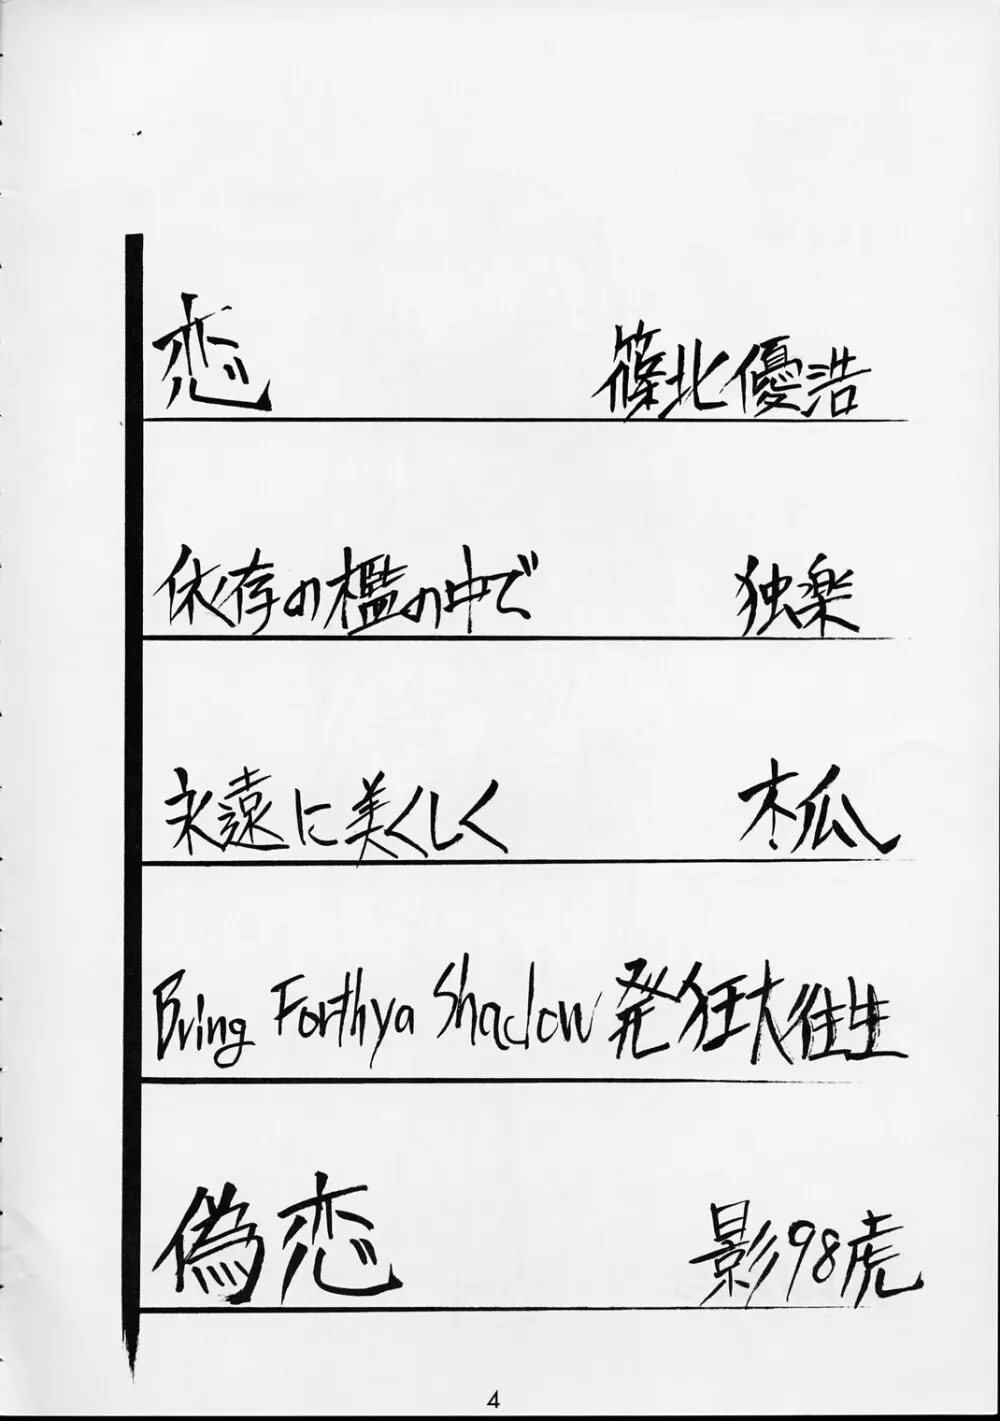 恋 篠北優浩
依存の檻の中で 独楽
永遠に美くしく 木瓜
Bring Forthya Shadow 発狂大往生
偽恋 影98虎
4